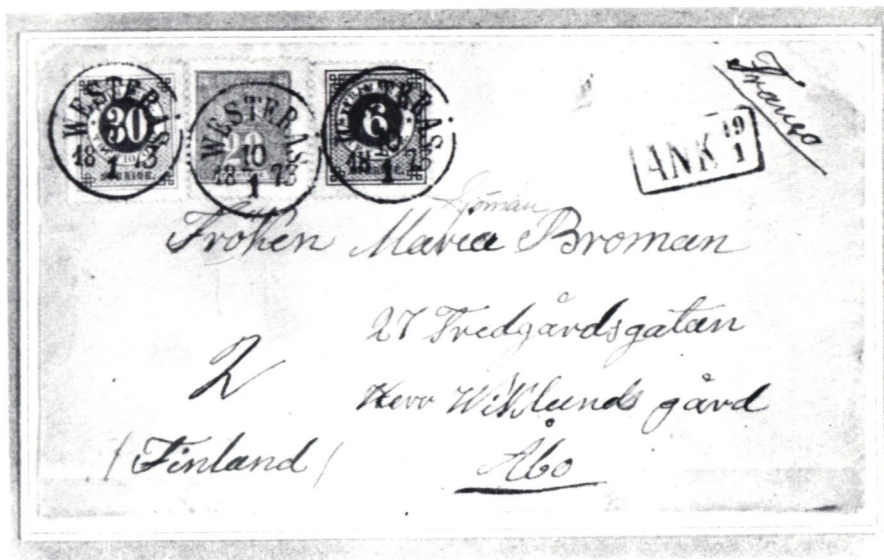 WESTERÅS
10
1
18 73
30
SVERIGE.
WESTERÅS
10
1
18 73
20
WESTERÅS
10
1
18 73
6
Franco
ANK 19
1
Fröken Maria Broman
27 Fredgårdsgatan
Herr Wiklunds gård
Åbo
2
/Finland/